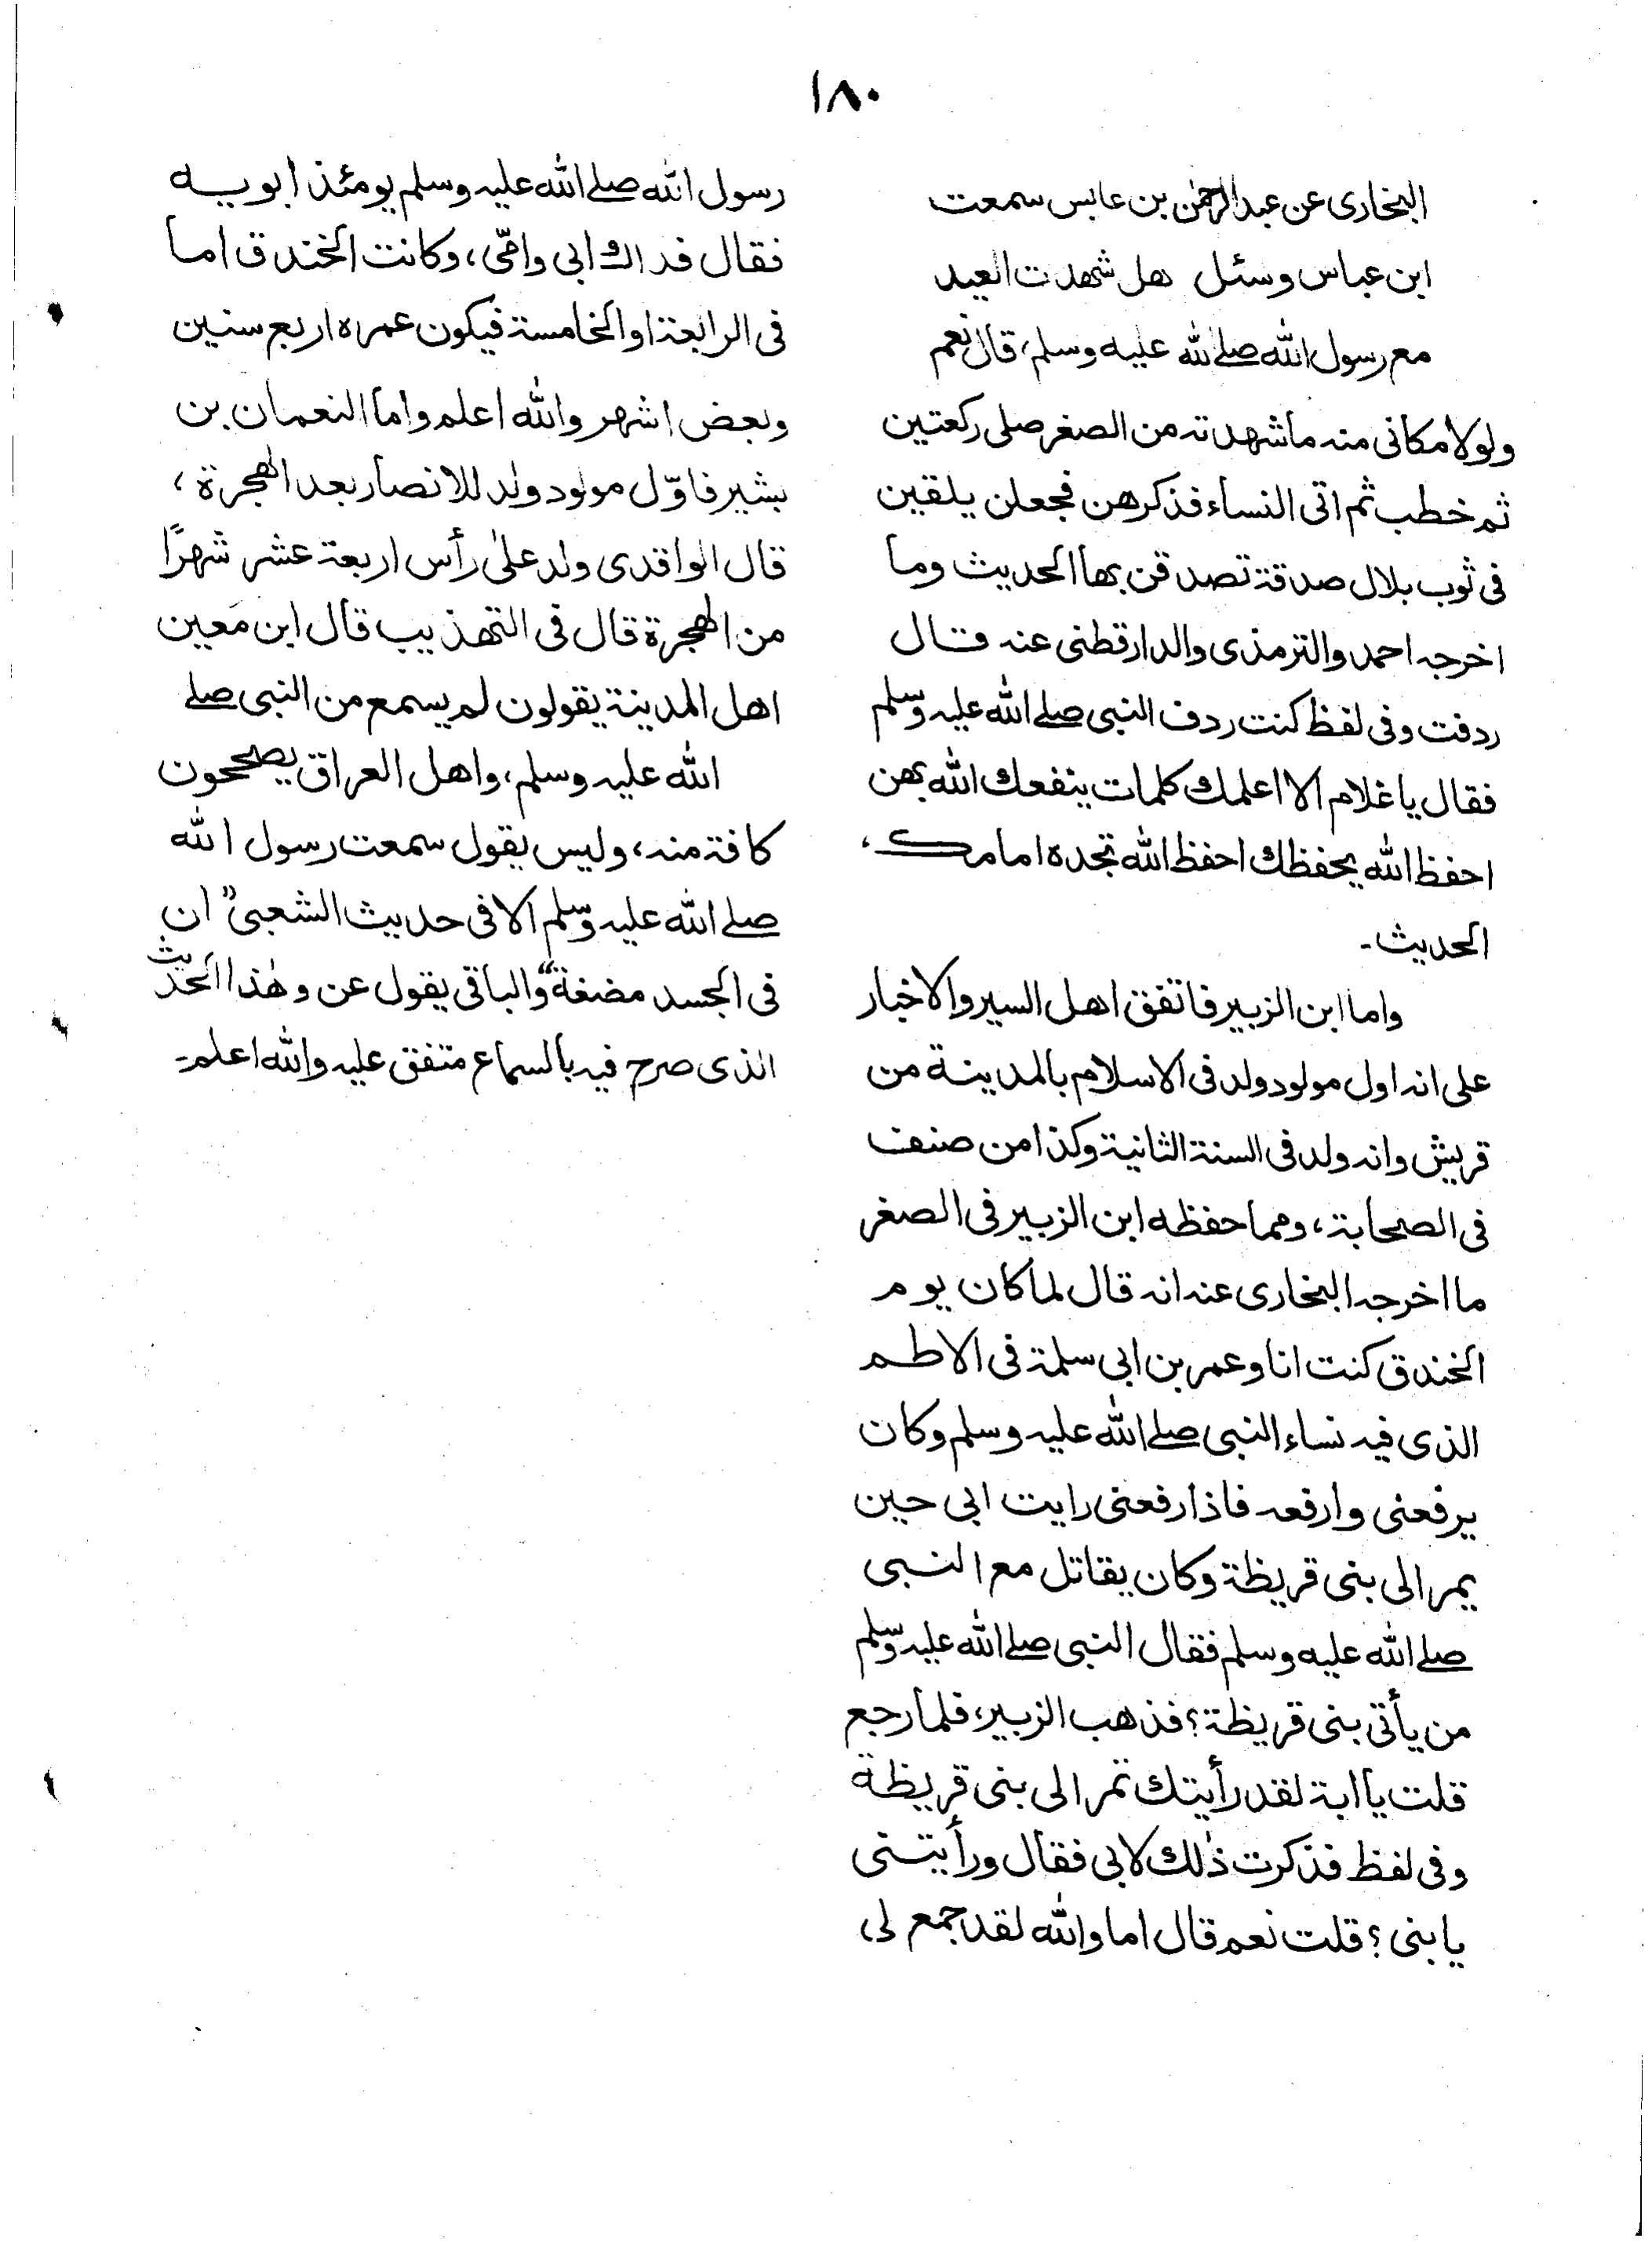 ١٨٠
البخارى عن عبد الرحمٰن بن عابس سمعت
ابن عباس وسئل هل شهدت العيد
مع رسول الله صلے الله عليه وسلم، قال نعم
ولولا مكانى منه ما شهدته من الصغر صلى ركعتين
ثم خطب ثم اتى النساء فذكرهن فجعلن يلقين
فى ثوب بلال صدقة تصدقن بها الحديث وما
اخرجه احمد والترمذى والدارقطنى عنه قال
ردفت وفى لفظ كنت ردف النبى صلے الله عليه وسلم
فقال يا غلام الا اعلمك كلمات ينفعك الله بهن
احفظ الله يحفظك احفظ الله تجده امامك،
الحديث۔
واما ابن الزبير فاتفق اهل السير والاخبار
على انه اول مولود ولد فى الاسلام بالمدينة من
قريش وانه ولد فى السنة الثانية وكذا من صنف
فى الصحابة، ومما حفظه ابن الزبير فى الصغر
ما اخرجه البخارى عنه انه قال لما كان يوم
الخندق كنت انا وعمر بن ابى سلمة فى الاطم
الذى فيه نساء النبى صلے الله عليه وسلم وكان
يرفعنى وارفعه فاذا رفعنى رايت ابى حين
يمر الى بنى قريظة وكان يقاتل مع النبى
صلے الله عليه وسلم فقال النبى صلے الله عليه وسلم
من يأتى بنى قريظة؟ فذهب الزبير، فلما رجع
قلت يا ابة لقد رأيتك تمر الى بنى قريظة
وفى لفظ فذكرت ذٰلك لابى فقال ورأيتنى
يا بنى؟ قلت نعم قال اما والله لقد جمع لى
رسول الله صلے الله عليه وسلم يومئذ ابويه
فقال فداك ابى وامّى، وكانت الخندق اما
فى الرابعة او الخامسة فيكون عمره اربع سنين
وبعض اشهر والله اعلم واما النعمان بن
بشير فاوّل مولود ولد للانصار بعد الهجرة،
قال الواقدى ولد علىٰ رأس اربعة عشر شهرًا
من الهجرة قال فى التهذيب قال ابن مَعين
اهل المدينة يقولون لم يسمع من النبى صلے
الله عليه وسلم، واهل العراق يصححون
كافة منه، وليس يقول سمعت رسول الله
صلے الله عليه وسلم الا فى حديث الشعبى "ان
فى الجسد مضغة" والباقى يقول عن وهٰذا الحديث
الذى صرح فيه بالسماع متفق عليه والله اعلم۔